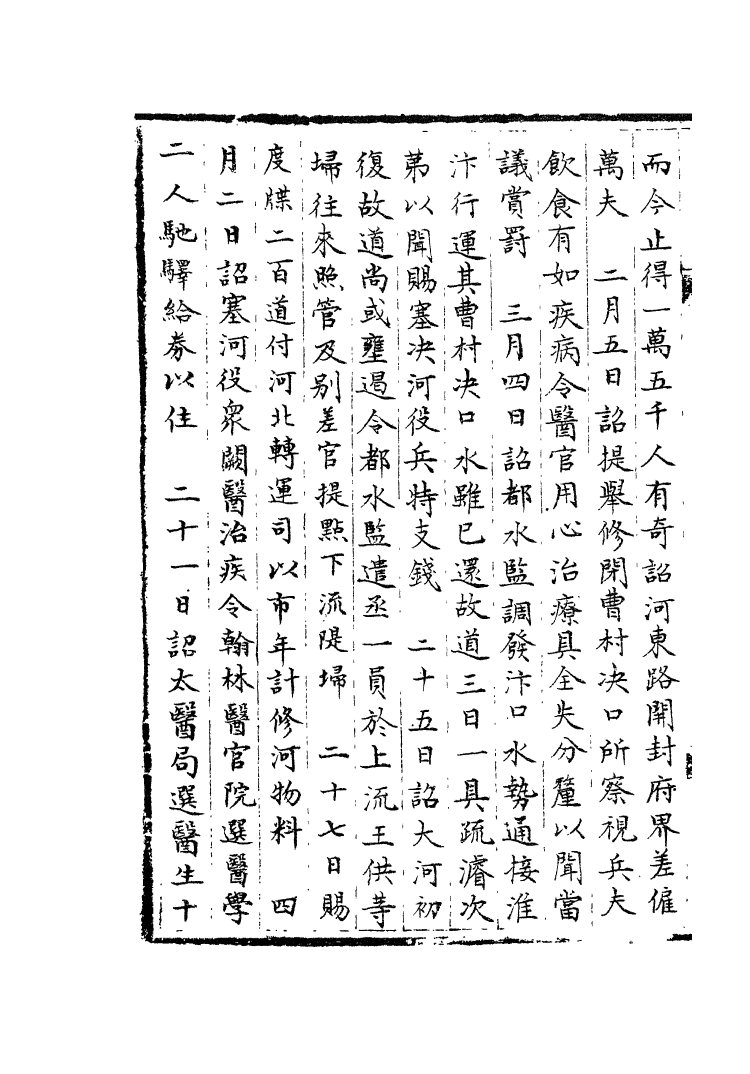 而今止得一萬五千人有奇詔河東路開封府界差僱
萬夫　二月五日詔提舉修閉曹村决口所察視兵夫
飲食有如疾病令醫官用心治療具全失分釐以聞當
議賞罸　三月四日詔都水監調發汴口水勢通接淮
汴行運其曹村决口水雖已還故道三日一具疏濬次
苐以聞賜塞决河役兵特支錢　二十五日詔大河初
復故道尚或壅遏令都水監遣丞一員於上流王供等
埽往來照管及别差官提㸃下流隄埽　二十七日賜
度牒二百道付河北轉運司以市年計修河物料　四
月二日詔塞河役衆闕醫治疾令翰林醫官院選醫學
二人馳驛給劵以住　二十一日詔太醫局選醫生十